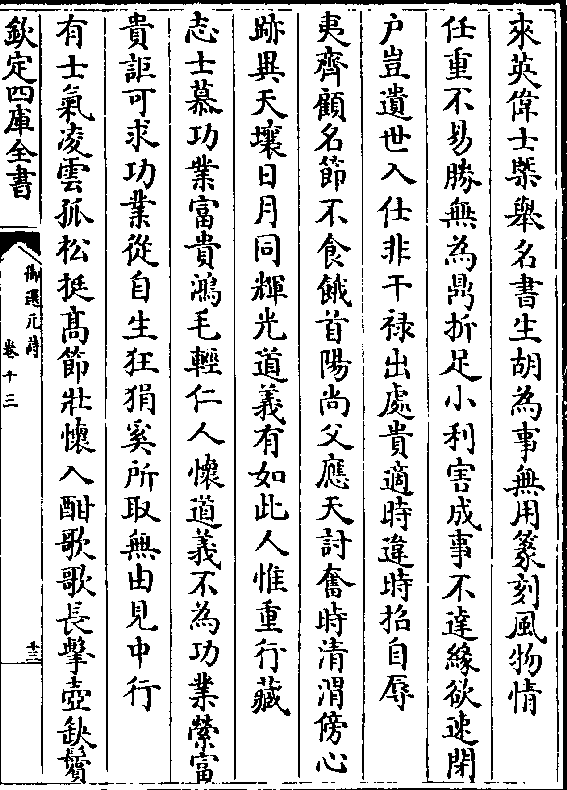 來英偉士槩舉名書生胡為事無用篆刻風物情
任重不易勝無為鼎折足小利害成事不達緣欲速閉
户豈遺世入仕非干禄出處貴適時違時招自辱
夷齊顧名節不食餓首陽尚父應天討奮時清渭傍心
跡異天壤日月同輝光道義有如此人惟重行藏
志士慕功業富貴鴻毛輕仁人懷道義不為功業縈富
貴詎可求功業從自生狂狷奚所取無由見中行
有士氣凌雲孤松挺髙節壯懷入酣歌歌長擊壺缺鬢
欽定四庫全書
御選元詩
卷十三
十三